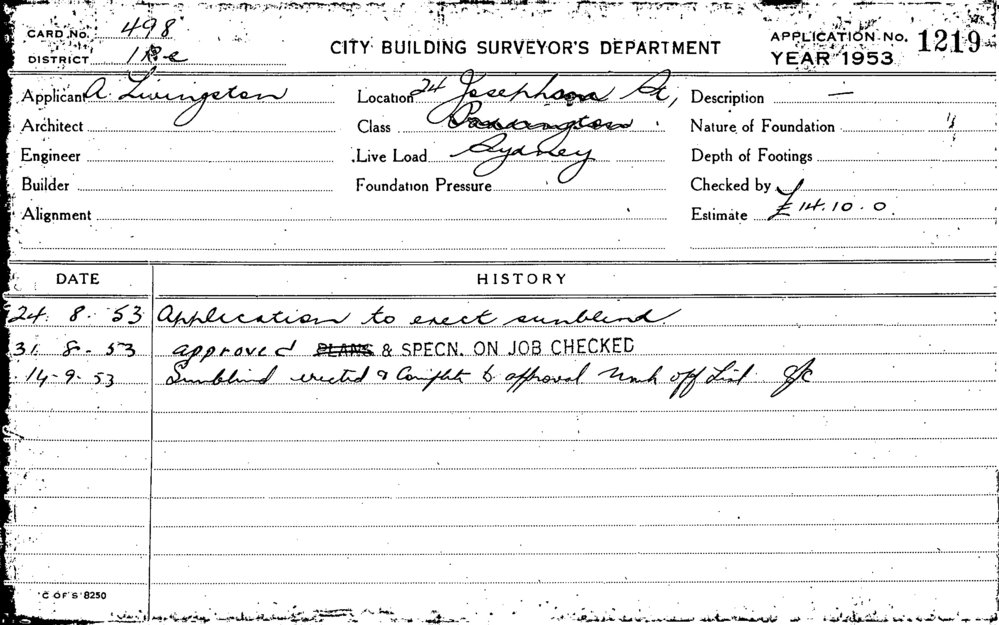 CARD No. 498
DISTRICT
CITY BUILDING SURVEYOR'S DEPARTMENT
APPLICATION No. 1219
YEAR 1953
Applicant A Livingston
Location 24 St,
Description —
Architect
Class Paddington
Nature of Foundation
Engineer
Live Load Sydney
Depth of Footings
Builder
Foundation Pressure
Checked by
Alignment
Estimate £14.10.0.
DATE HISTORY
24. 8. 53 Application to erect sunblind.
31. 8. 53 approved PLANS & SPECN. ON JOB CHECKED
14-9-53 Sunblind erected & Complete to approval Mark off List
C OF S 8250